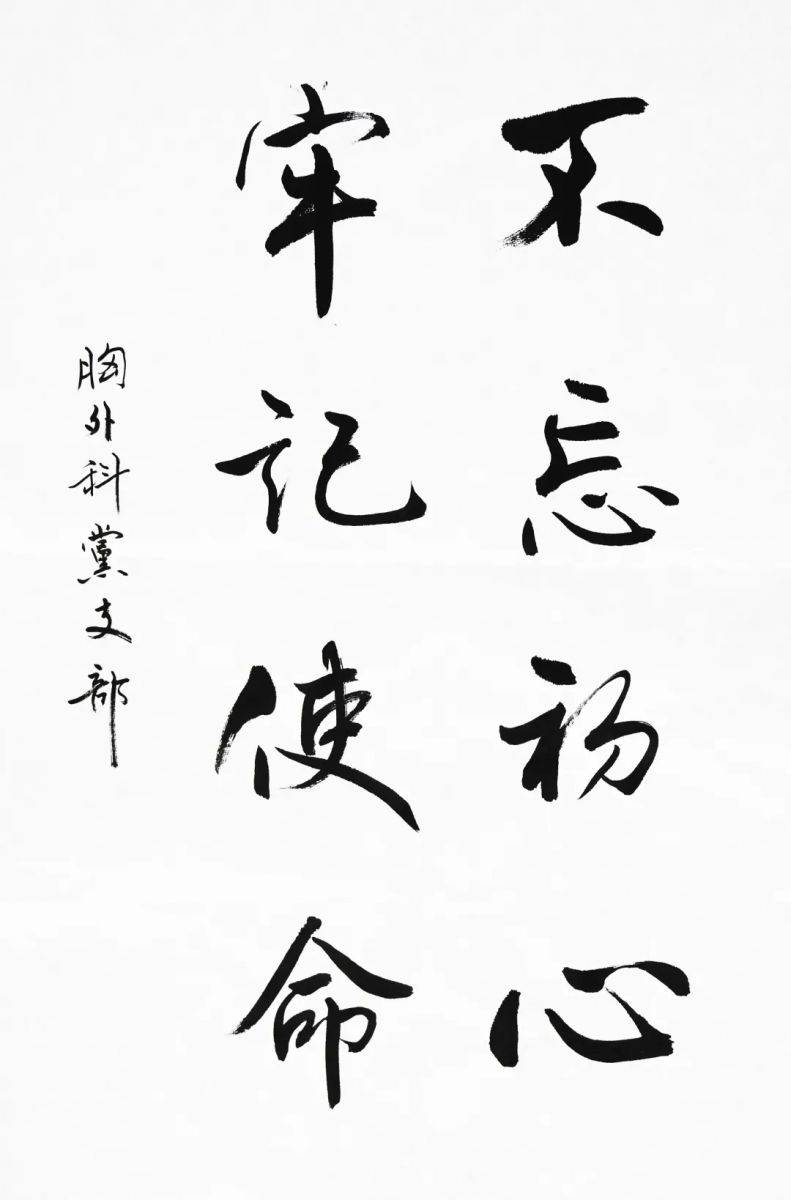 不忘初心
牢记使命
胸外科黨支部